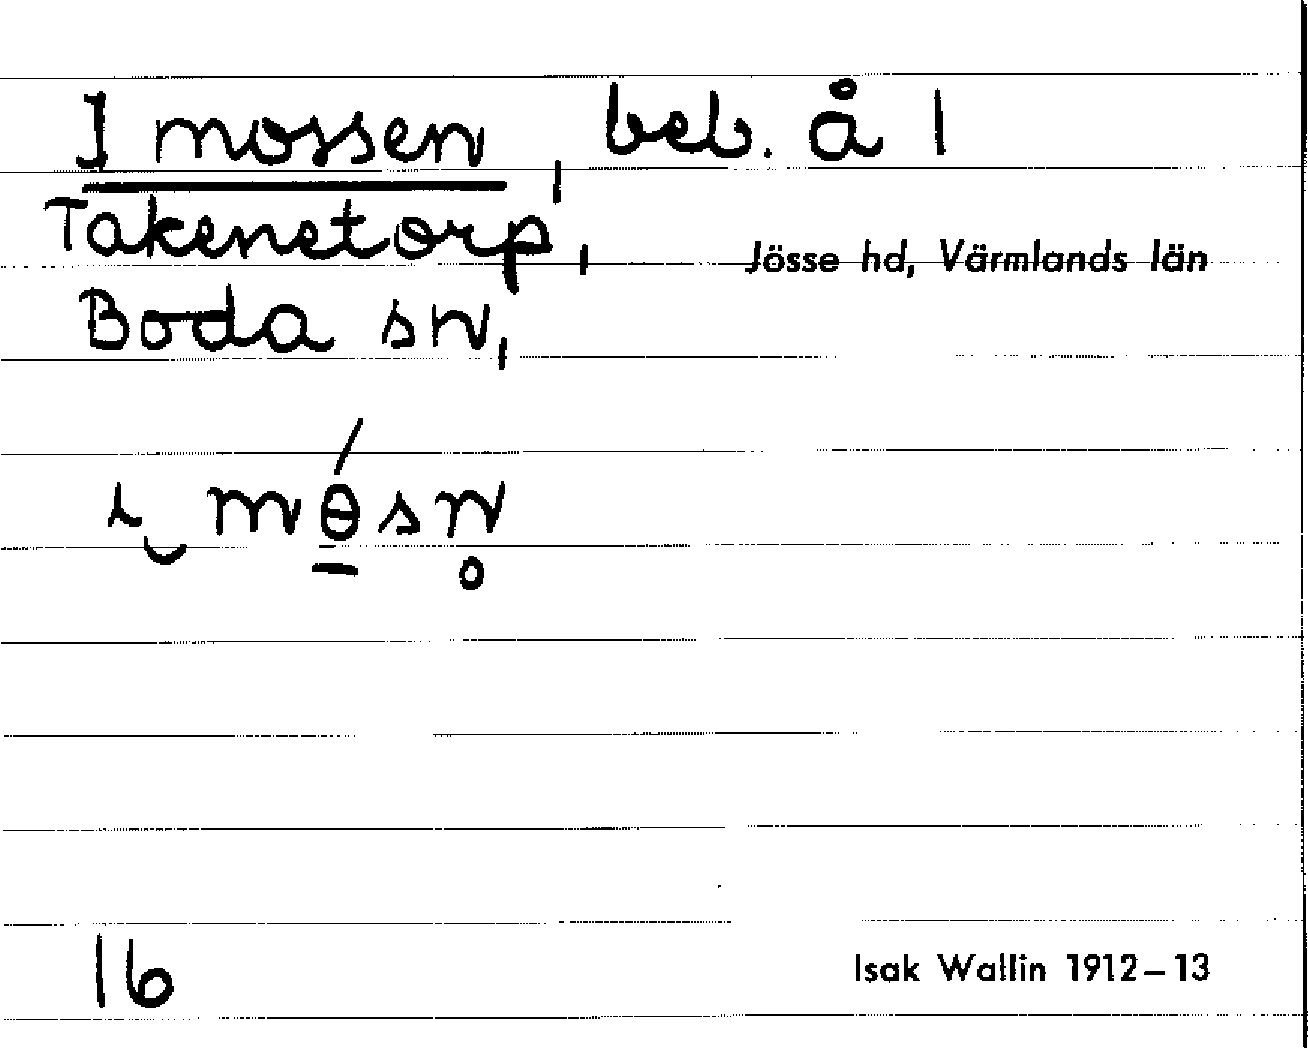 I mossen, beb. å 1
Takenetorp,
Jösse hd, Värmlands län
Boda sn,
i‿ mɵ̱́sn̥
16
Isak Wallin 1912–13